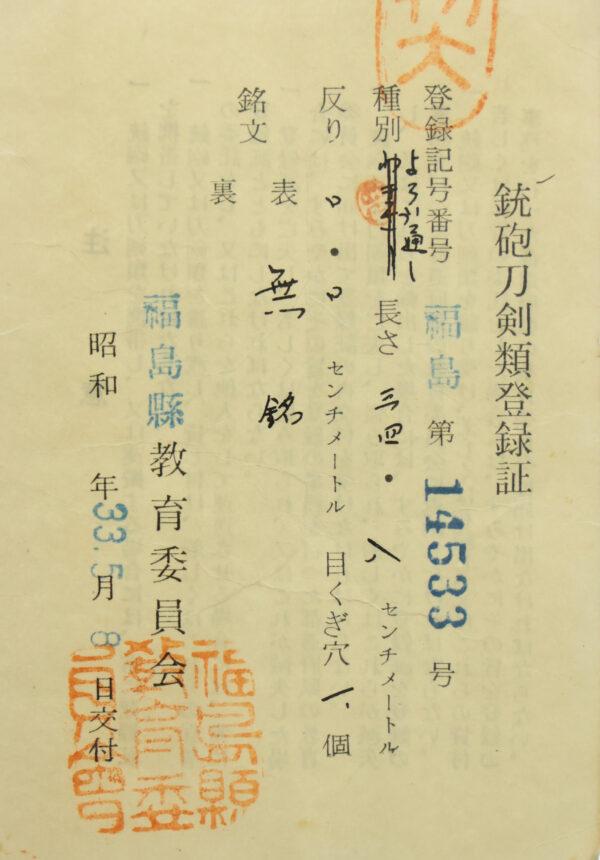 銃砲刀剣類登録証
登録記号番号 福島 第 14533 号
種別 よろい通し 長さ 三四・八 センチメートル
反り ロ・ロ センチメートル 目くぎ穴 一、個
銘文 表 無銘
裏
福島縣教育委員会
昭和 33年5月8日交付
福島縣教育委員会